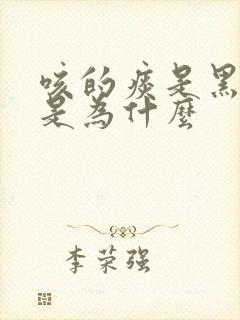 咳的痰是黑
是为什麼
李荣强